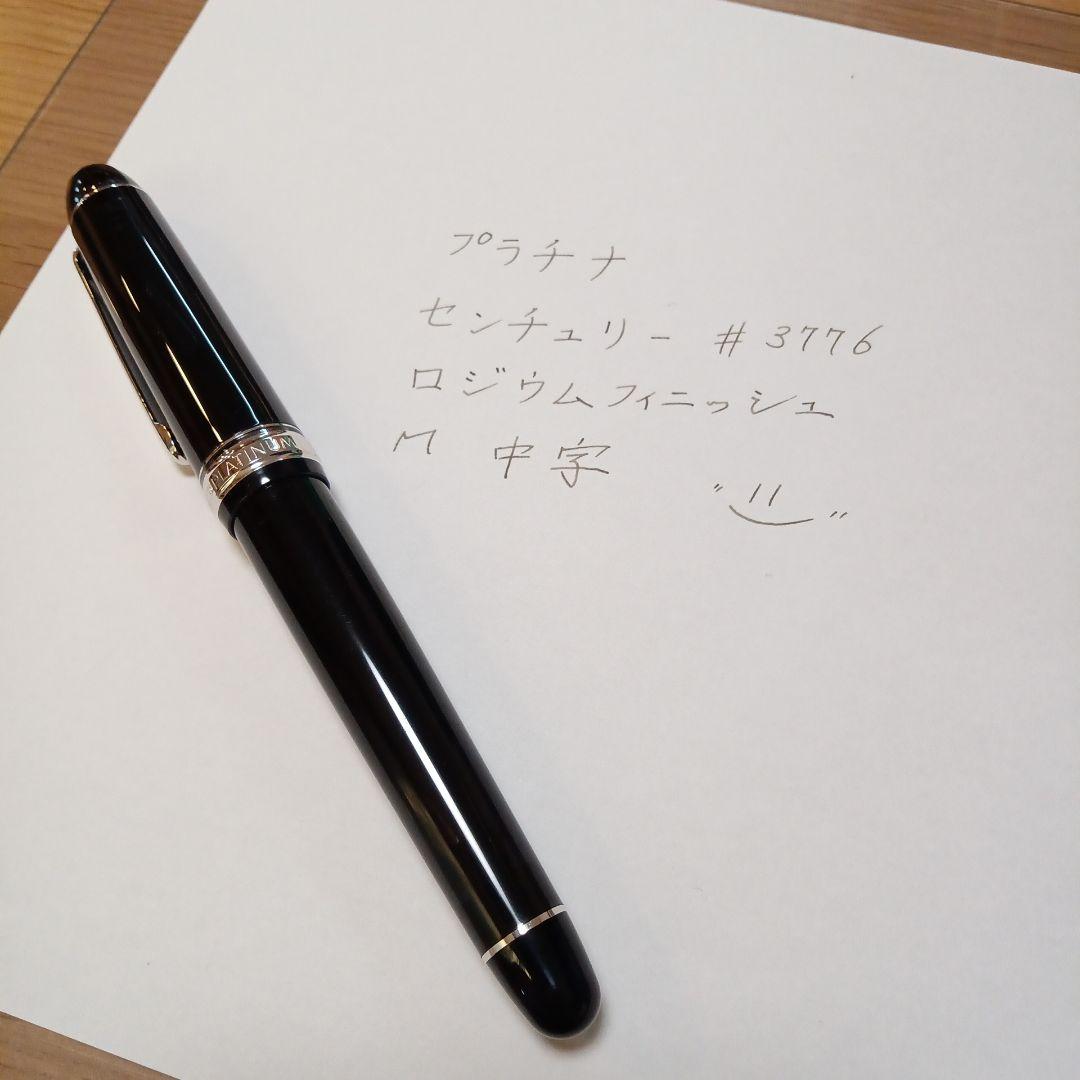 プラチナ
センチュリー #3776
ロジウムフィニッシュ
M 中字
PLATINUM